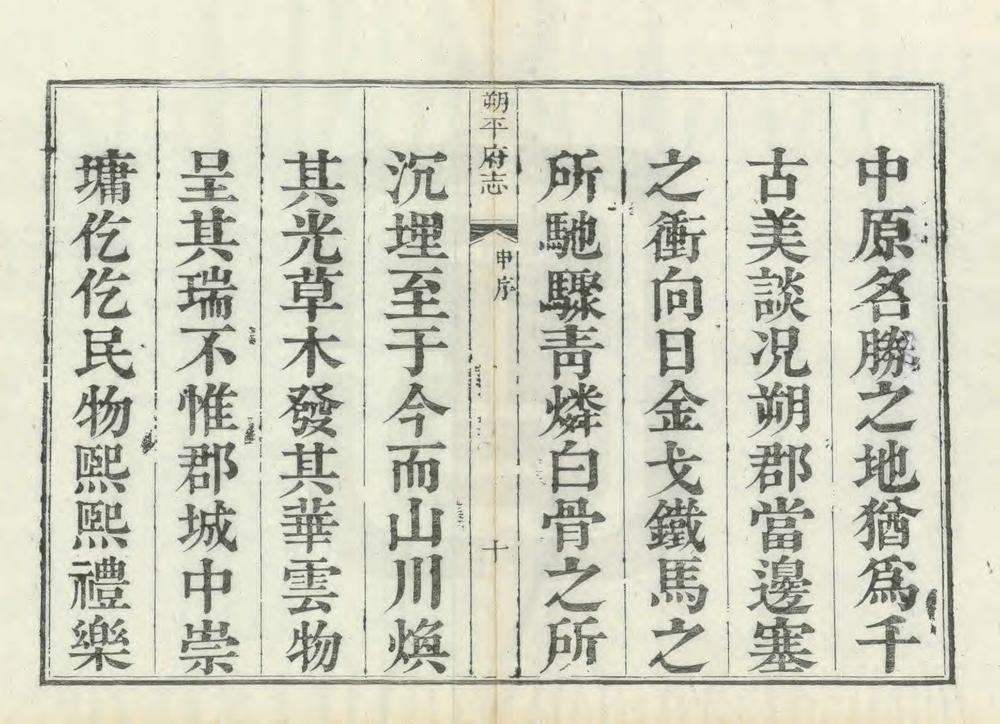 中原名勝之地猶爲千
古美談况朔郡當邊塞
之衝向日金戈鐵馬之
所馳驟靑燐白骨之所
朔平府志
申序
十
沉埋至于今而山川煥
其光草木發其華雲物
呈其瑞不惟郡城中崇
墉仡仡民物熙熙禮樂